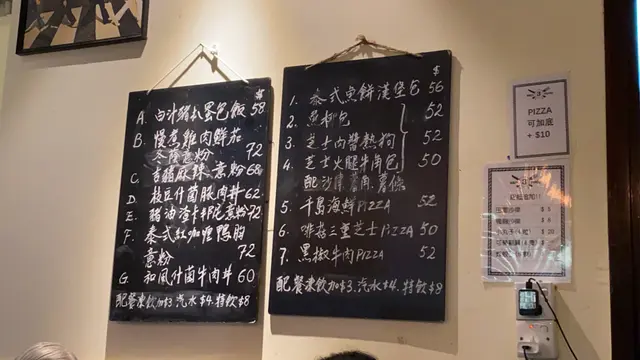 $
A. 白汁豬扒蛋包飯 58
B. 慢煮雞肉鮮茄
冬蔭意粉 72
C. 吉豬麻辣意粉 68
D. 枝豆什菌豚肉丼 62
E. 豬油渣 意粉 72
F. 泰式紅咖喱鴨胸
意粉 72
G. 和風什菌牛肉丼 60
配餐凍飲加$3. 汽水 $4. 特飲$8
$
1. 泰式魚餅漢堡包 56
2. 魚柳包 52
3. 芝士肉醬熱狗 52
4. 芝士火腿牛肉包 50
配沙律 薯條
5. 千島海鮮PIZZA 52
6. 啡菇三重芝士PIZZA 50
7. 黑椒牛肉PIZZA 52
配餐凍飲加$3. 汽水$4. 特飲$8
PIZZA
可加底
+ $10